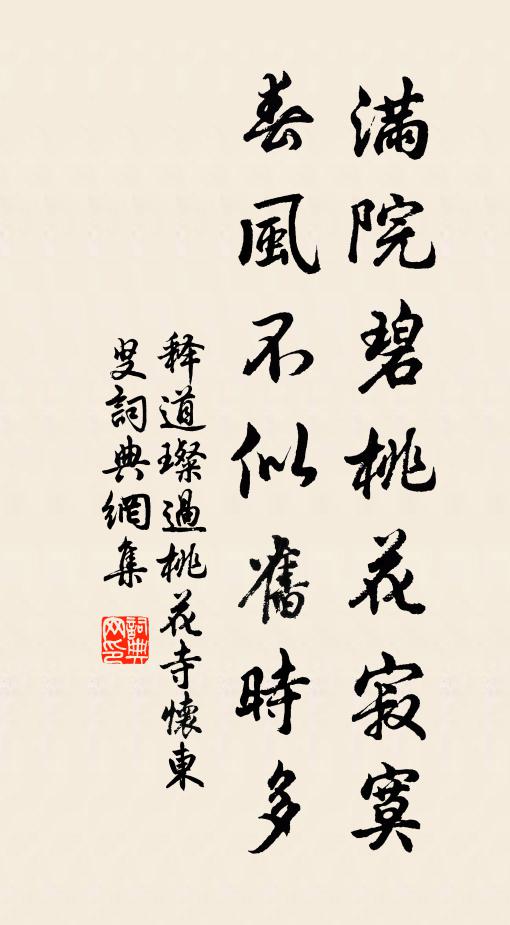 滿院碧桃花寂寞
春風不似舊時多
釋道璨過桃花寺懷東
叟詞典網集
詞典網印